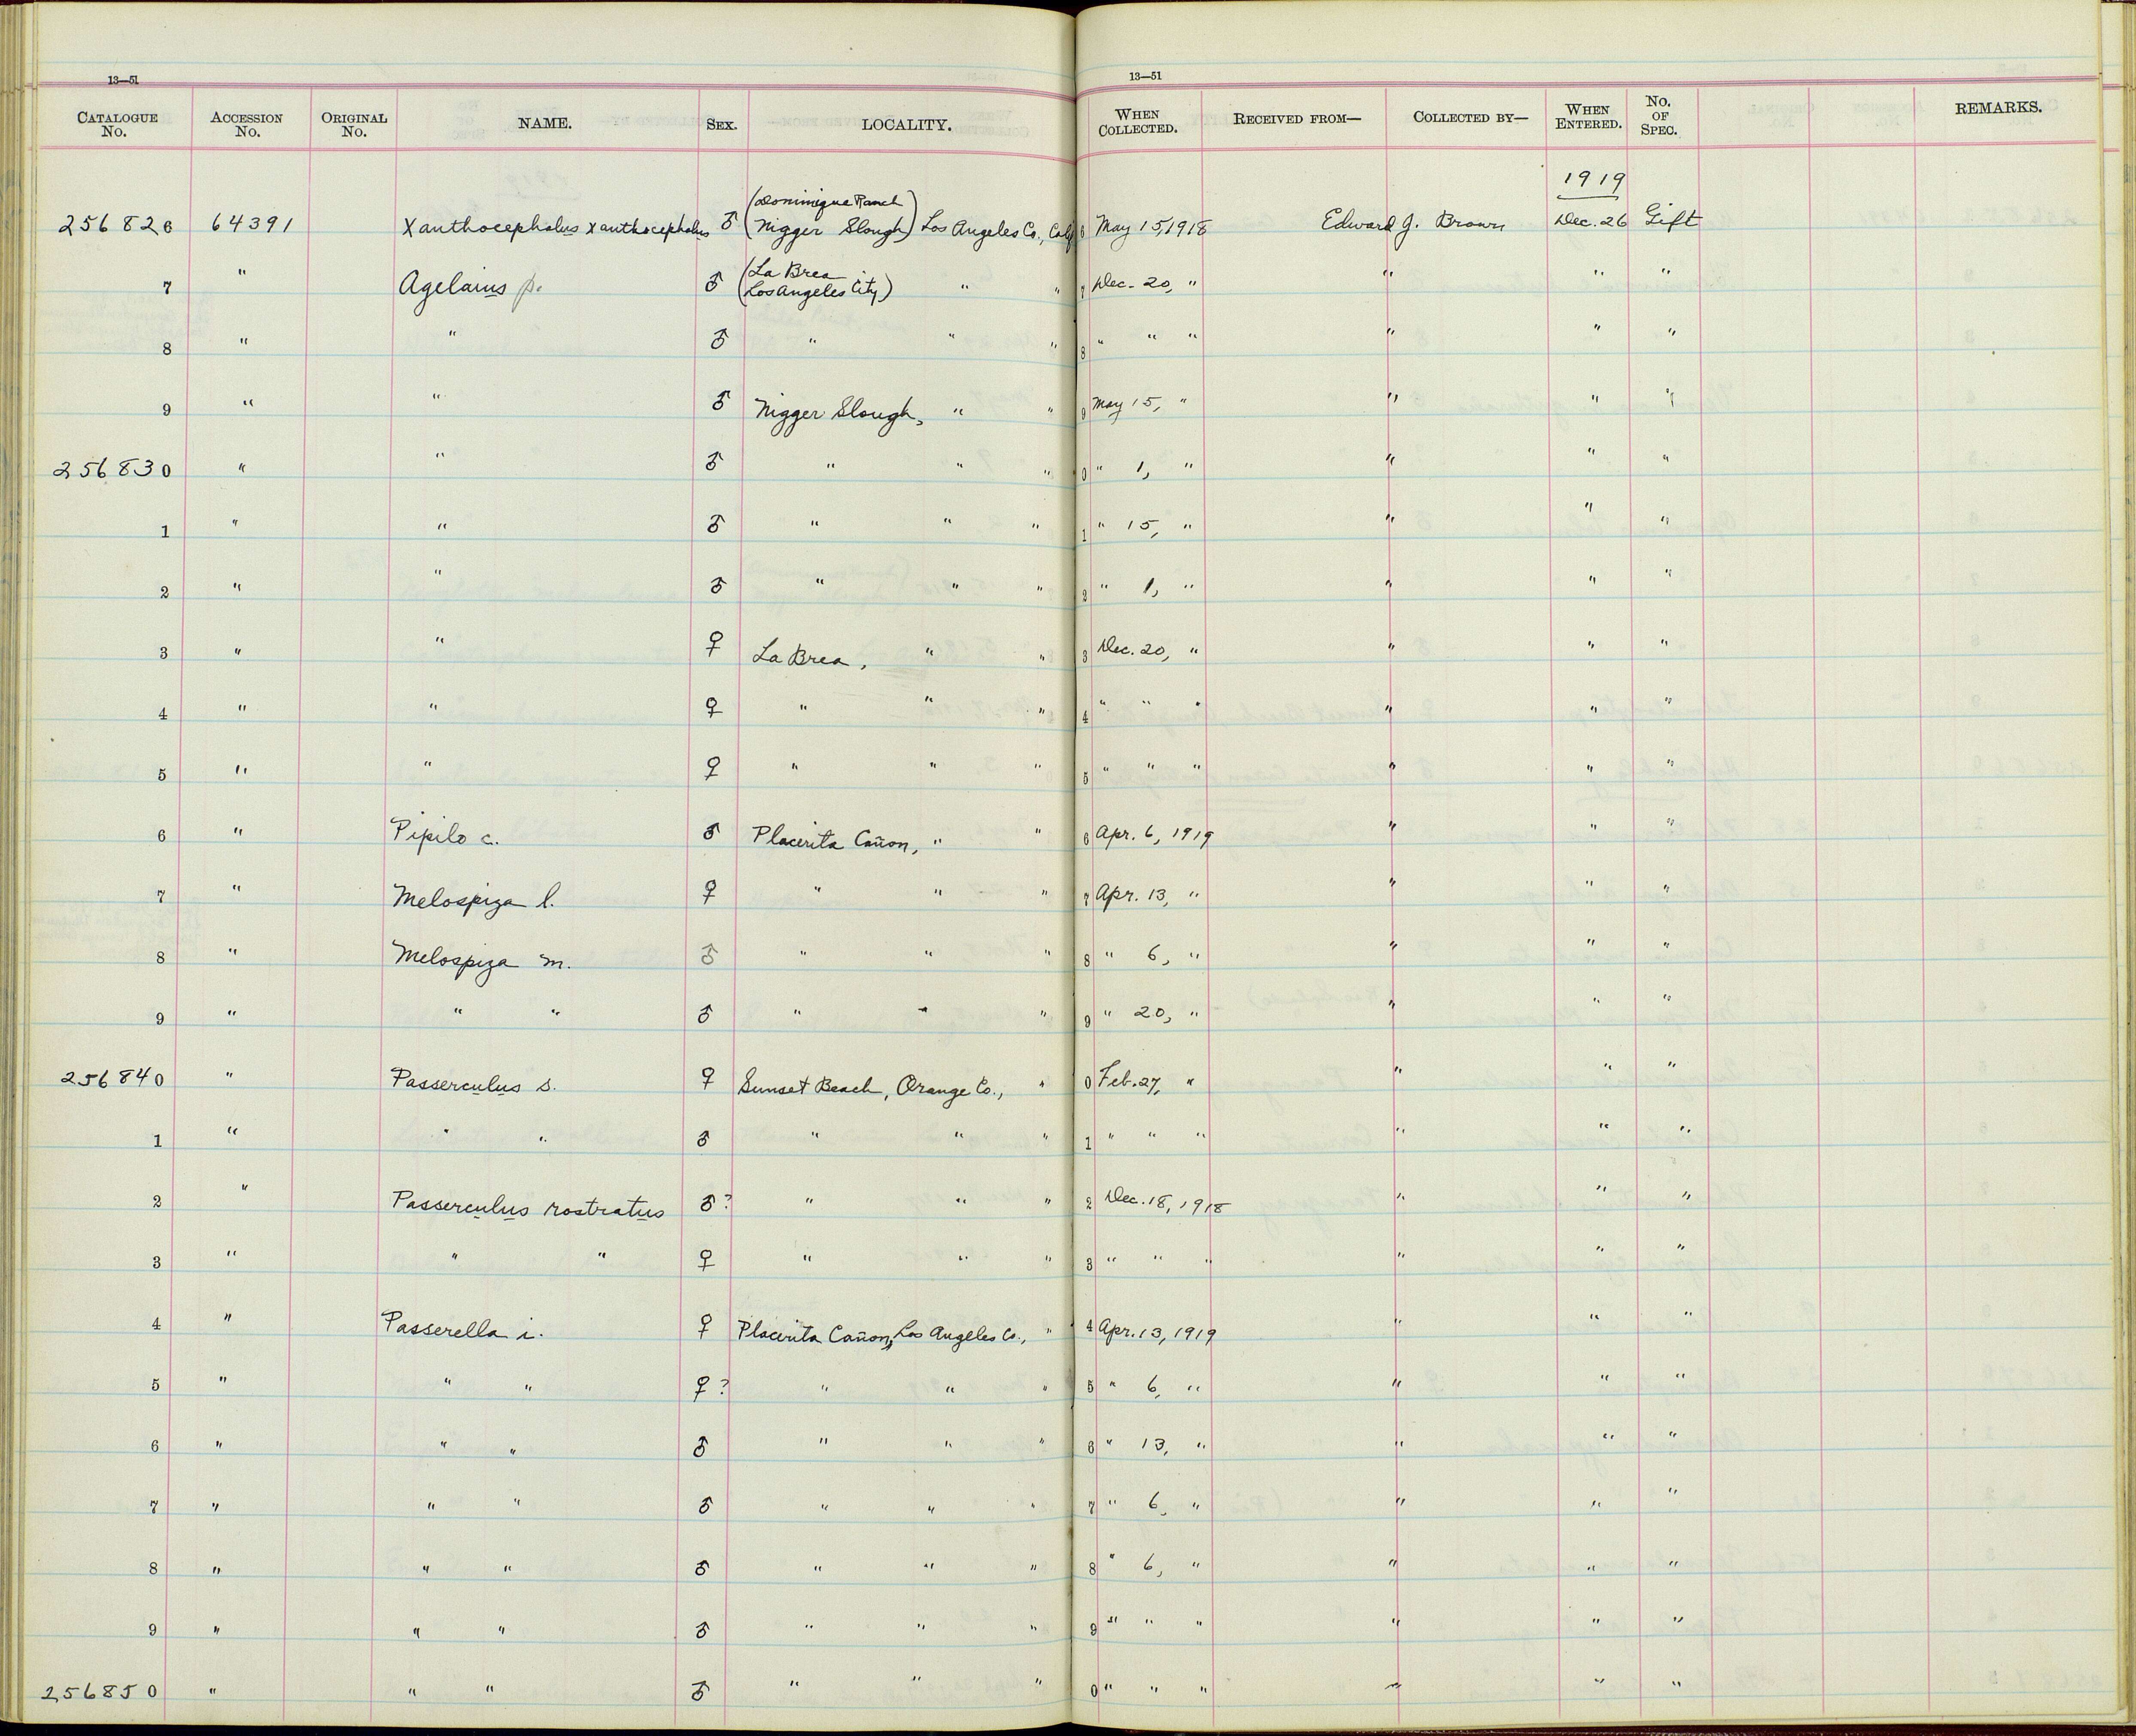 13—51
13—51
CATALOGUE No. ACCESSION No. ORIGINAL No. NAME. SEX. LOCALITY. WHEN COLLECTED. RECEIVED FROM— COLLECTED BY— WHEN ENTERED. No. OF SPEC. REMARKS.
1919
(Dominique Ranch
256826 64391 Xanthocephalus xanthocephalus ♂ Nigger Slough) Los Angeles Co., Calif 6 May 15, 1918 Edward J. Brown Dec. 26 Gift
(La Brea
7 " Agelaius p. ♂ Los Angeles City) " " 7 Dec. 20, " " " "
8 " " ♂ " " " 8 " " " " " "
9 " " ♂ Nigger Slough, " " 9 May 15, " " " "
256830 " " ♂ " " " 0 " 1, " " " "
1 " " ♂ " " " 1 " 15, " " " "
2 " " ♂ " " " 2 " 1, " " " "
3 " " ♀ La Brea, " " 3 Dec. 20, " " " "
4 " " ♀ " " " 4 " " " " " "
5 " " ♀ " " " 5 " " " " " "
6 " Pipilo c. ♂ Placerita Cañon, " " 6 Apr. 6, 1919 " " "
7 " Melospiza l. ♀ " " " 7 Apr. 13, " " " "
8 " Melospiza m. ♂ " " " 8 " 6, " " " "
9 " " " ♂ " " " 9 " 20, " " " "
256840 " Passerculus s. ♀ Sunset Beach, Orange Co., " 0 Feb. 27, " " " "
1 " " " ♂ " " " 1 " " " " " "
2 " Passerculus rostratus ♂? " " " 2 Dec. 18, 1918 " " "
3 " " " ♀ " " " 3 " " " " " "
4 " Passerella i. ♀ Placerita Cañon, Los Angeles Co., " 4 Apr. 13, 1919 " " "
5 " " " ♀? " " " 5 " 6, " " " "
6 " " " ♂ " " " 6 " 13, " " " "
7 " " " ♂ " " " 7 " 6, " " " "
8 " " " ♂ " " " 8 " 6, " " " "
9 " " " ♂ " " " 9 " " " " " "
256850 " " " ♂ " " " 0 " " " " " "